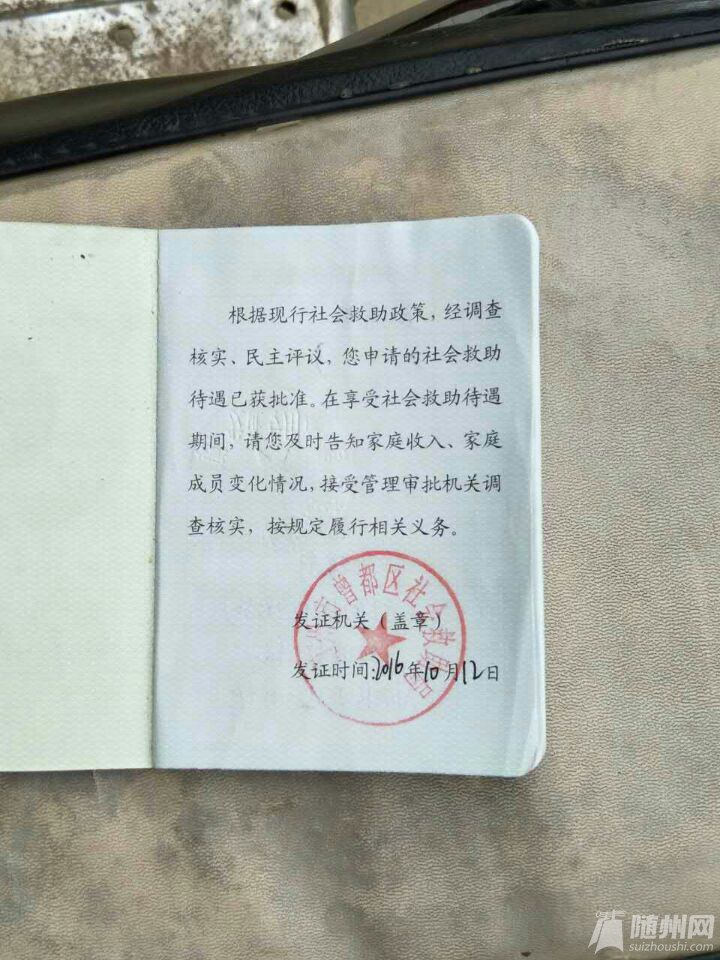 根据现行社会救助政策，经调查
核实、民主评议，您申请的社会救助
待遇已获批准。在享受社会救助待遇
期间，请您及时告知家庭收入、家庭
成员变化情况，接受管理审批机关调
查核实，按规定履行相关义务。
曾都区社会救助局
发证机关（盖章）
发证时间:2016年10月12日
随州网
suizhoushi.com